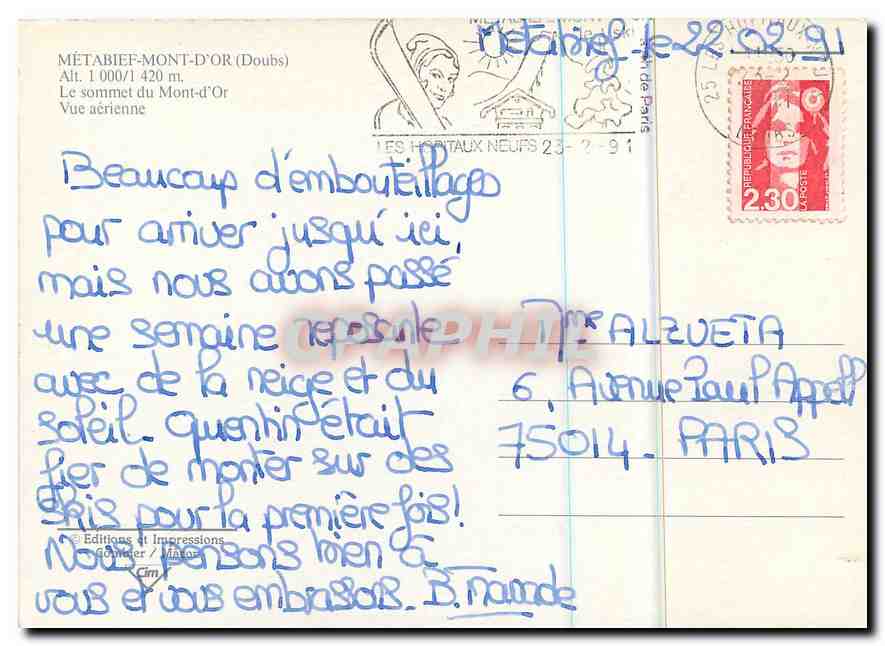 MÉTABIEF-MONT-D'OR (Doubs)
Alt. 1 000/1 420 m.
Le sommet du Mont-d'Or
Vue aérienne
LES HOPITAUX NEUFS 23-2-91
de Paris
Métabief le 22.02.91
REPUBLIQUE FRANÇAISE
2.30
LA POSTE
Beaucoup d'embouteillages
pour arriver jusqu'ici,
mais nous avons passé
une semaine reposante
avec de la neige et du
soleil. Quentin était
fier de monter sur des
skis pour la première fois!
Nous pensons bien à
vous et vous embrassons.
Mme ALZUETA
6, Avenue Paul Appell
75014 - PARIS
© Editions et Impressions
Combier / Mâcon
Cim
CPAPHIL